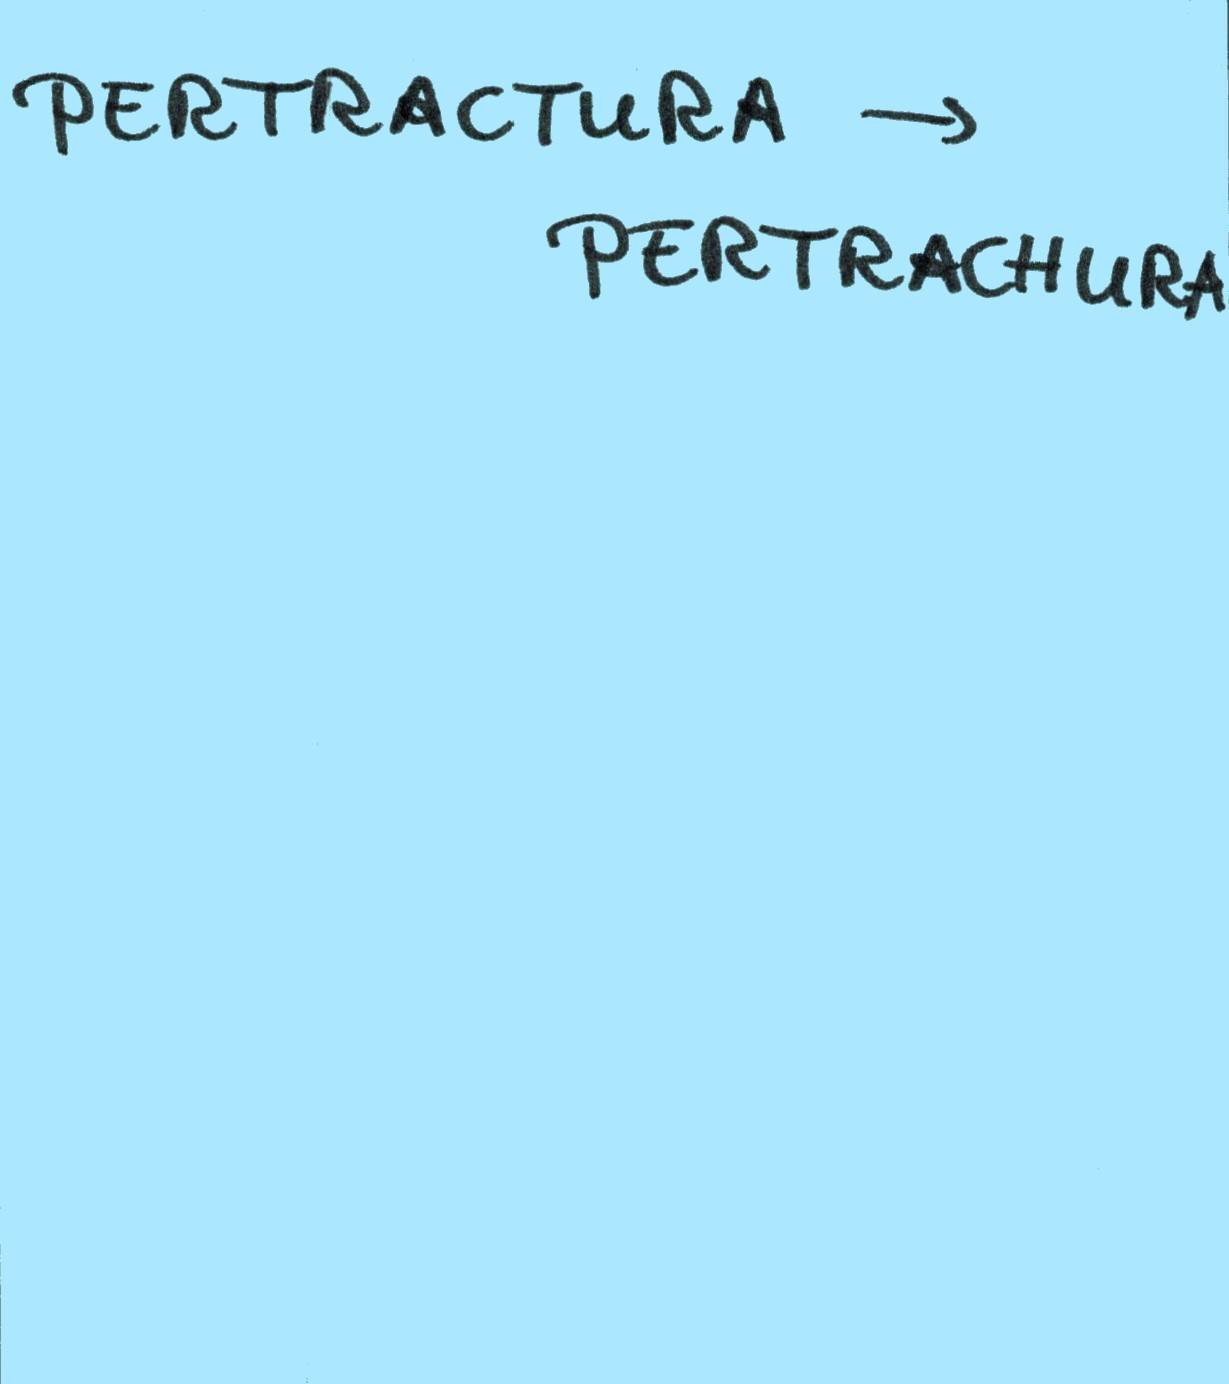 PERTRACTURA →
PERTRACHURA